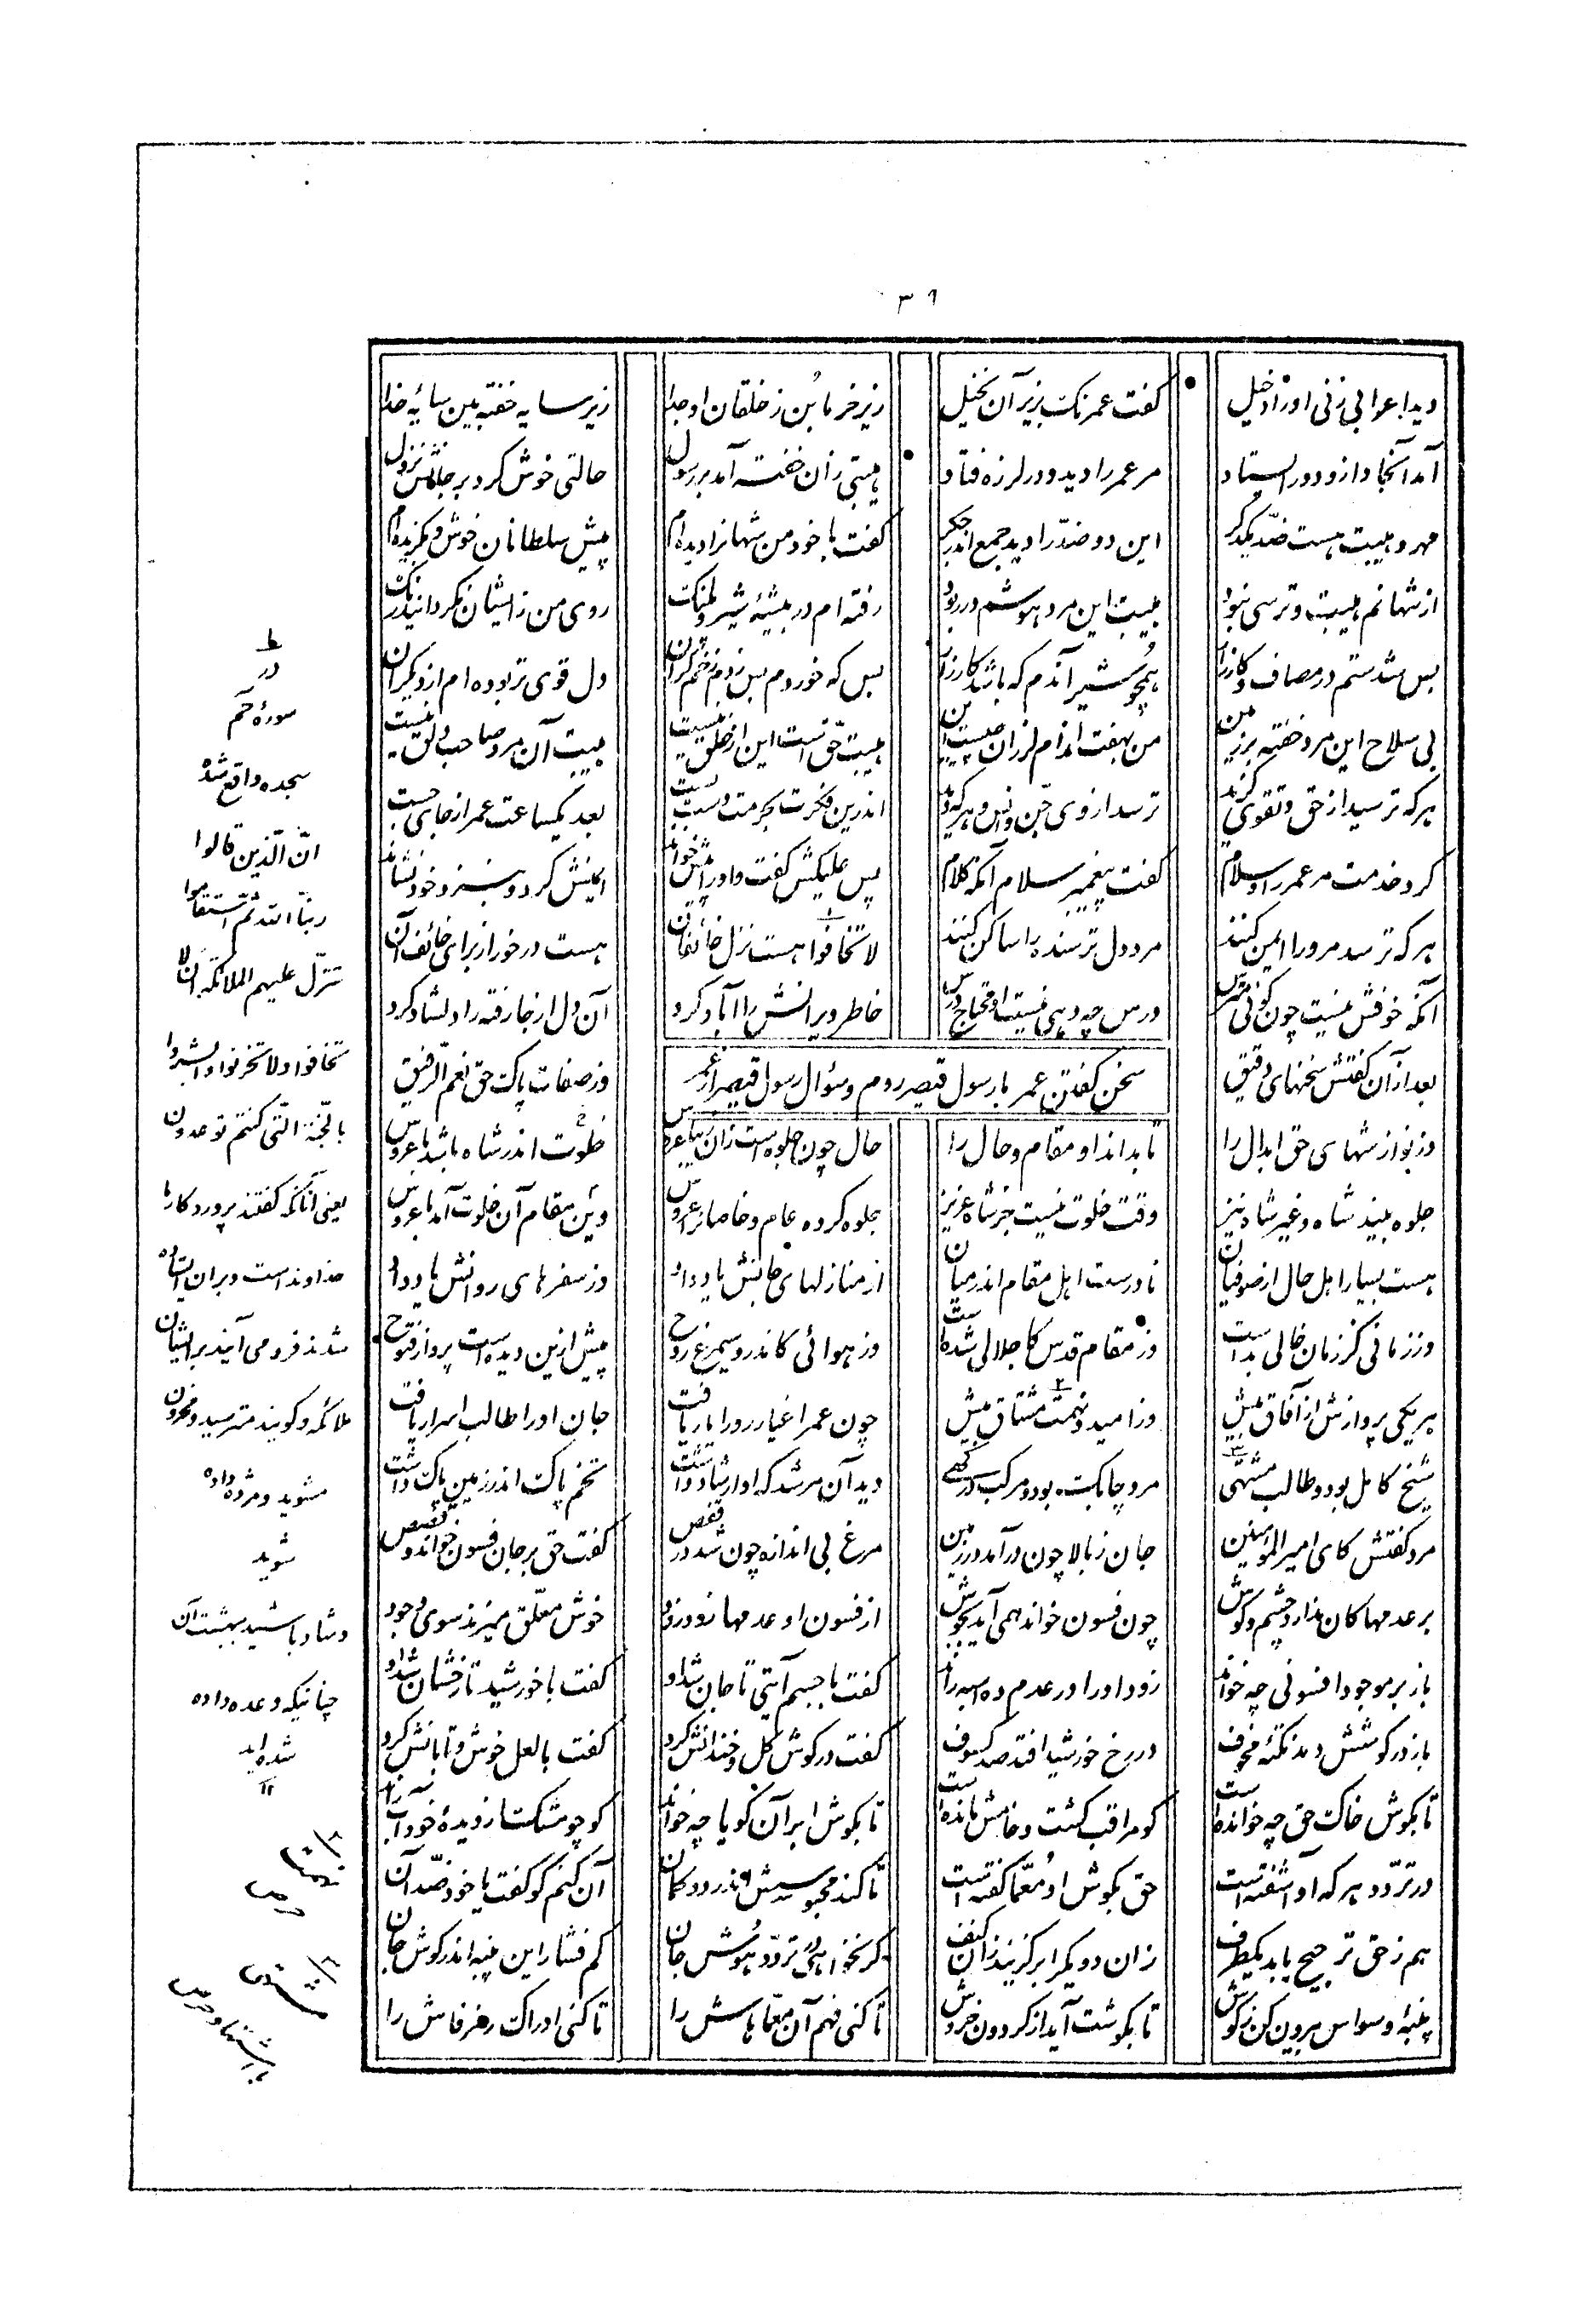 ۳۹
دید اعرابی زنی او را دخیل	گفت عمر نک بزیر آن نخیل	زیر خرمابُن ز خلقان او جدا	زیر سایه خفته بین سایهٔ خدا
آمد آنجا و از دور ایستاد	مر عمر را دید و در لرزه فتاد	هیبتی زان خفته آمد بر رسول	حالتی خوش کرد بر جانش نزول
مهر و هیبت هست ضدّ یکدگر	این دو ضدّ را دید جمع اندر جگر	گفت با خود من شهانرا دیده‌ام	پیش سلطانان خوش و بگزیده‌ام
از شهانم هیبت و ترسی نبود	هیبت این مرد هوشم در ربود	رفته‌ام در بیشهٔ شیر و پلنگ	روی من زایشان نگردانید رنگ
بس شدستم در مصاف و کارزار	همچو شیر آندم که باشد کار زار	بس که خوردم بس زدم زخم گران	دل قوی تر بوده‌ام از دیگران
بی سلاح این مرد خفته بر زمین	من بهفت اندام لرزان چیست این	هیبت حقّ است این از خلق نیست	هیبت آن مرد صاحب دلق نیست
هر که ترسید از حق و تقوی گزید	ترسد از وی جنّ و انس و هر که دید	اندرین فکرت بحرمت دست بست	بعد یکساعت عمر از جای جست
کرد خدمت مر عمر را و سلام	گفت پیغمبر سلام آنگه کلام	پس علیکش گفت و او را پیش خواند	ایمنش کرد و بنزد خود نشاند
هر که ترسد مر ورا ایمن کنند	مر دل ترسنده را ساکن کنند	لا تخافوا هست نزل خائفان	هست در خور از برای خائف آن
آنکه خوفش نیست چون گوئی مترس	درس چه دهی نیست او محتاج درس	خاطر ویرانش را آباد کرد	آن دل از جا رفته را دلشاد کرد
سخن گفتن عمر با رسول قیصر روم و سؤال رسول قیصر از عمر
بعد از آن گفتش سخنهای دقیق	وز صفات پاک حق نعم الرّفیق
وز نوازشهای حق ابدال را	تا بداند او مقام و حال را	حال چون جلوه است زان زیبا عروس	خلوت اندر شاه باشد با عروس
جلوه بیند شاه و غیر شاه نیز	وقت خلوت نیست جز شاه عزیز	جلوه کرده عام و خاصانرا عروس	وین مقام آن خلوت آمد با عروس
هست بسیار اهل حال از صوفیان	نادرست اهل مقام اندر میان	از منازلهای جانش یاد داد	وز سفرهای روانش یاد داد
وز زمانی کز زمان خالی بدست	وز مقام قدس کاجلالی شده است	وز هوائی کاندرو سیمرغ روح	پیش ازین دیده است پرواز فتوح
هر یکی پروازش از آفاق بیش	وز امید و نهمت مشتاق پیش	چون عمر اغیار رو را یار یافت	جان او را طالب اسرار یافت
شیخ کامل بود و طالب مشتهی	مرد چابک بود و مرکب درگهی	دید آن مرشد که او ارشاد داشت	تخم پاک اندر زمین پاک داشت
مرد گفتش کای امیر المؤمنین	جان ز بالا چون در آمد در زمین	مرغ بی اندازه چون شد در قفص	گفت حق بر جان فسون خواند و قصص
بر عدمها کان ندارد چشم و گوش	چون فسون خواند همی آید بجوش	از فسون او عدمها زود زود	خوش معلّق میزند سوی وجود
باز بر موجود افسونی چه خواند	زود او را در عدم دو اسبه راند	گفت با جسم آیتی تا جان شد او	گفت با خورشید تا رخشان شد او
باز در گوشش دمد نکتهٔ مخوف	در رخ خورشید افتد صد کسوف	گفت در گوش گل و خندانش کرد	گفت با لعل خوش و تابانش کرد
تا بگوش خاک حق چه خوانده است	کو مراقب گشت و خامش مانده است	تا بگوش ابر آن گویا چه خواند	کو چو مشک از دیدهٔ خود آب راند
در تردّد هر که او آشفته است	حق بگوش او معمّا گفته است	تا کند محبوسش اندر دو گمان	آن کنم کو گفت یا خود ضدّ آن
هم ز حق ترجیح یابد یکطرف	زان دو یکرا برگزیند زان کنف	گر نخواهی در تردّد هوش جان	کم فشار این پنبه اندر گوش جان
پنبهٔ وسواس بیرون کن ز گوش	تا بگوشت آید از گردون خروش	تا کنی فهم آن معمّاهاش را	تا کنی ادراک رمز فاش را
در
سورهٔ حم
سجده واقع شده
انّ الّذین قالوا
ربّنا الله ثمّ استقاموا
تتنزّل علیهم الملائکة ان لا
تخافوا ولا تحزنوا و ابشروا
بالجنّة الّتی کنتم توعدون
یعنی آنانکه گفتند پروردگار ما
خداوند است و بر آن ایستاده
شدند فرو می‌آیند بر ایشان
ملائکه و گویند مترسید و محزون
مشوید و مژده داده
شوید
و شاد باشید ببهشت آن
چنانیکه وعده داده
شده اید
۱۲